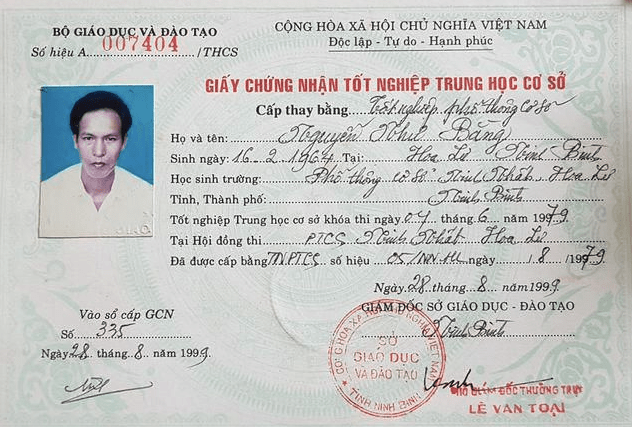 BỘ GIÁO DỤC VÀ ĐÀO TẠO
Số hiệu A 007404 /THCS
CỘNG HÒA XÃ HỘI CHỦ NGHĨA VIỆT NAM
Độc lập - Tự do - Hạnh phúc
GIẤY CHỨNG NHẬN TỐT NGHIỆP TRUNG HỌC CƠ SỞ
Cấp thay bằng Tốt nghiệp phổ thông cơ sở
Họ và tên: Nguyễn Như Băng
Sinh ngày 16-2-1964 Tại: Hoa Lư Ninh Bình
Học sinh trường: Phổ thông cơ sở Ninh Nhất, Hoa Lư
Tỉnh, Thành phố: Ninh Bình
Tốt nghiệp Trung học cơ sở khóa thi ngày 04 tháng 6 năm 1979
Tại Hội đồng thi PTCS Ninh Nhất Hoa Lư
Đã được cấp bằng TNPTCS số hiệu 05/NN-HL ngày /8/1979
Ngày 28 tháng 8 năm 1999
GIÁM ĐỐC SỞ GIÁO DỤC - ĐÀO TẠO
Ninh Bình
Vào sổ cấp GCN
Số 335
Ngày 28 tháng 8 năm 1999
SỞ
GIÁO DỤC
VÀ ĐÀO TẠO
TỈNH NINH BÌNH
PHÓ GIÁM ĐỐC THƯỜNG TRỰC
LÊ VĂN TOẠI